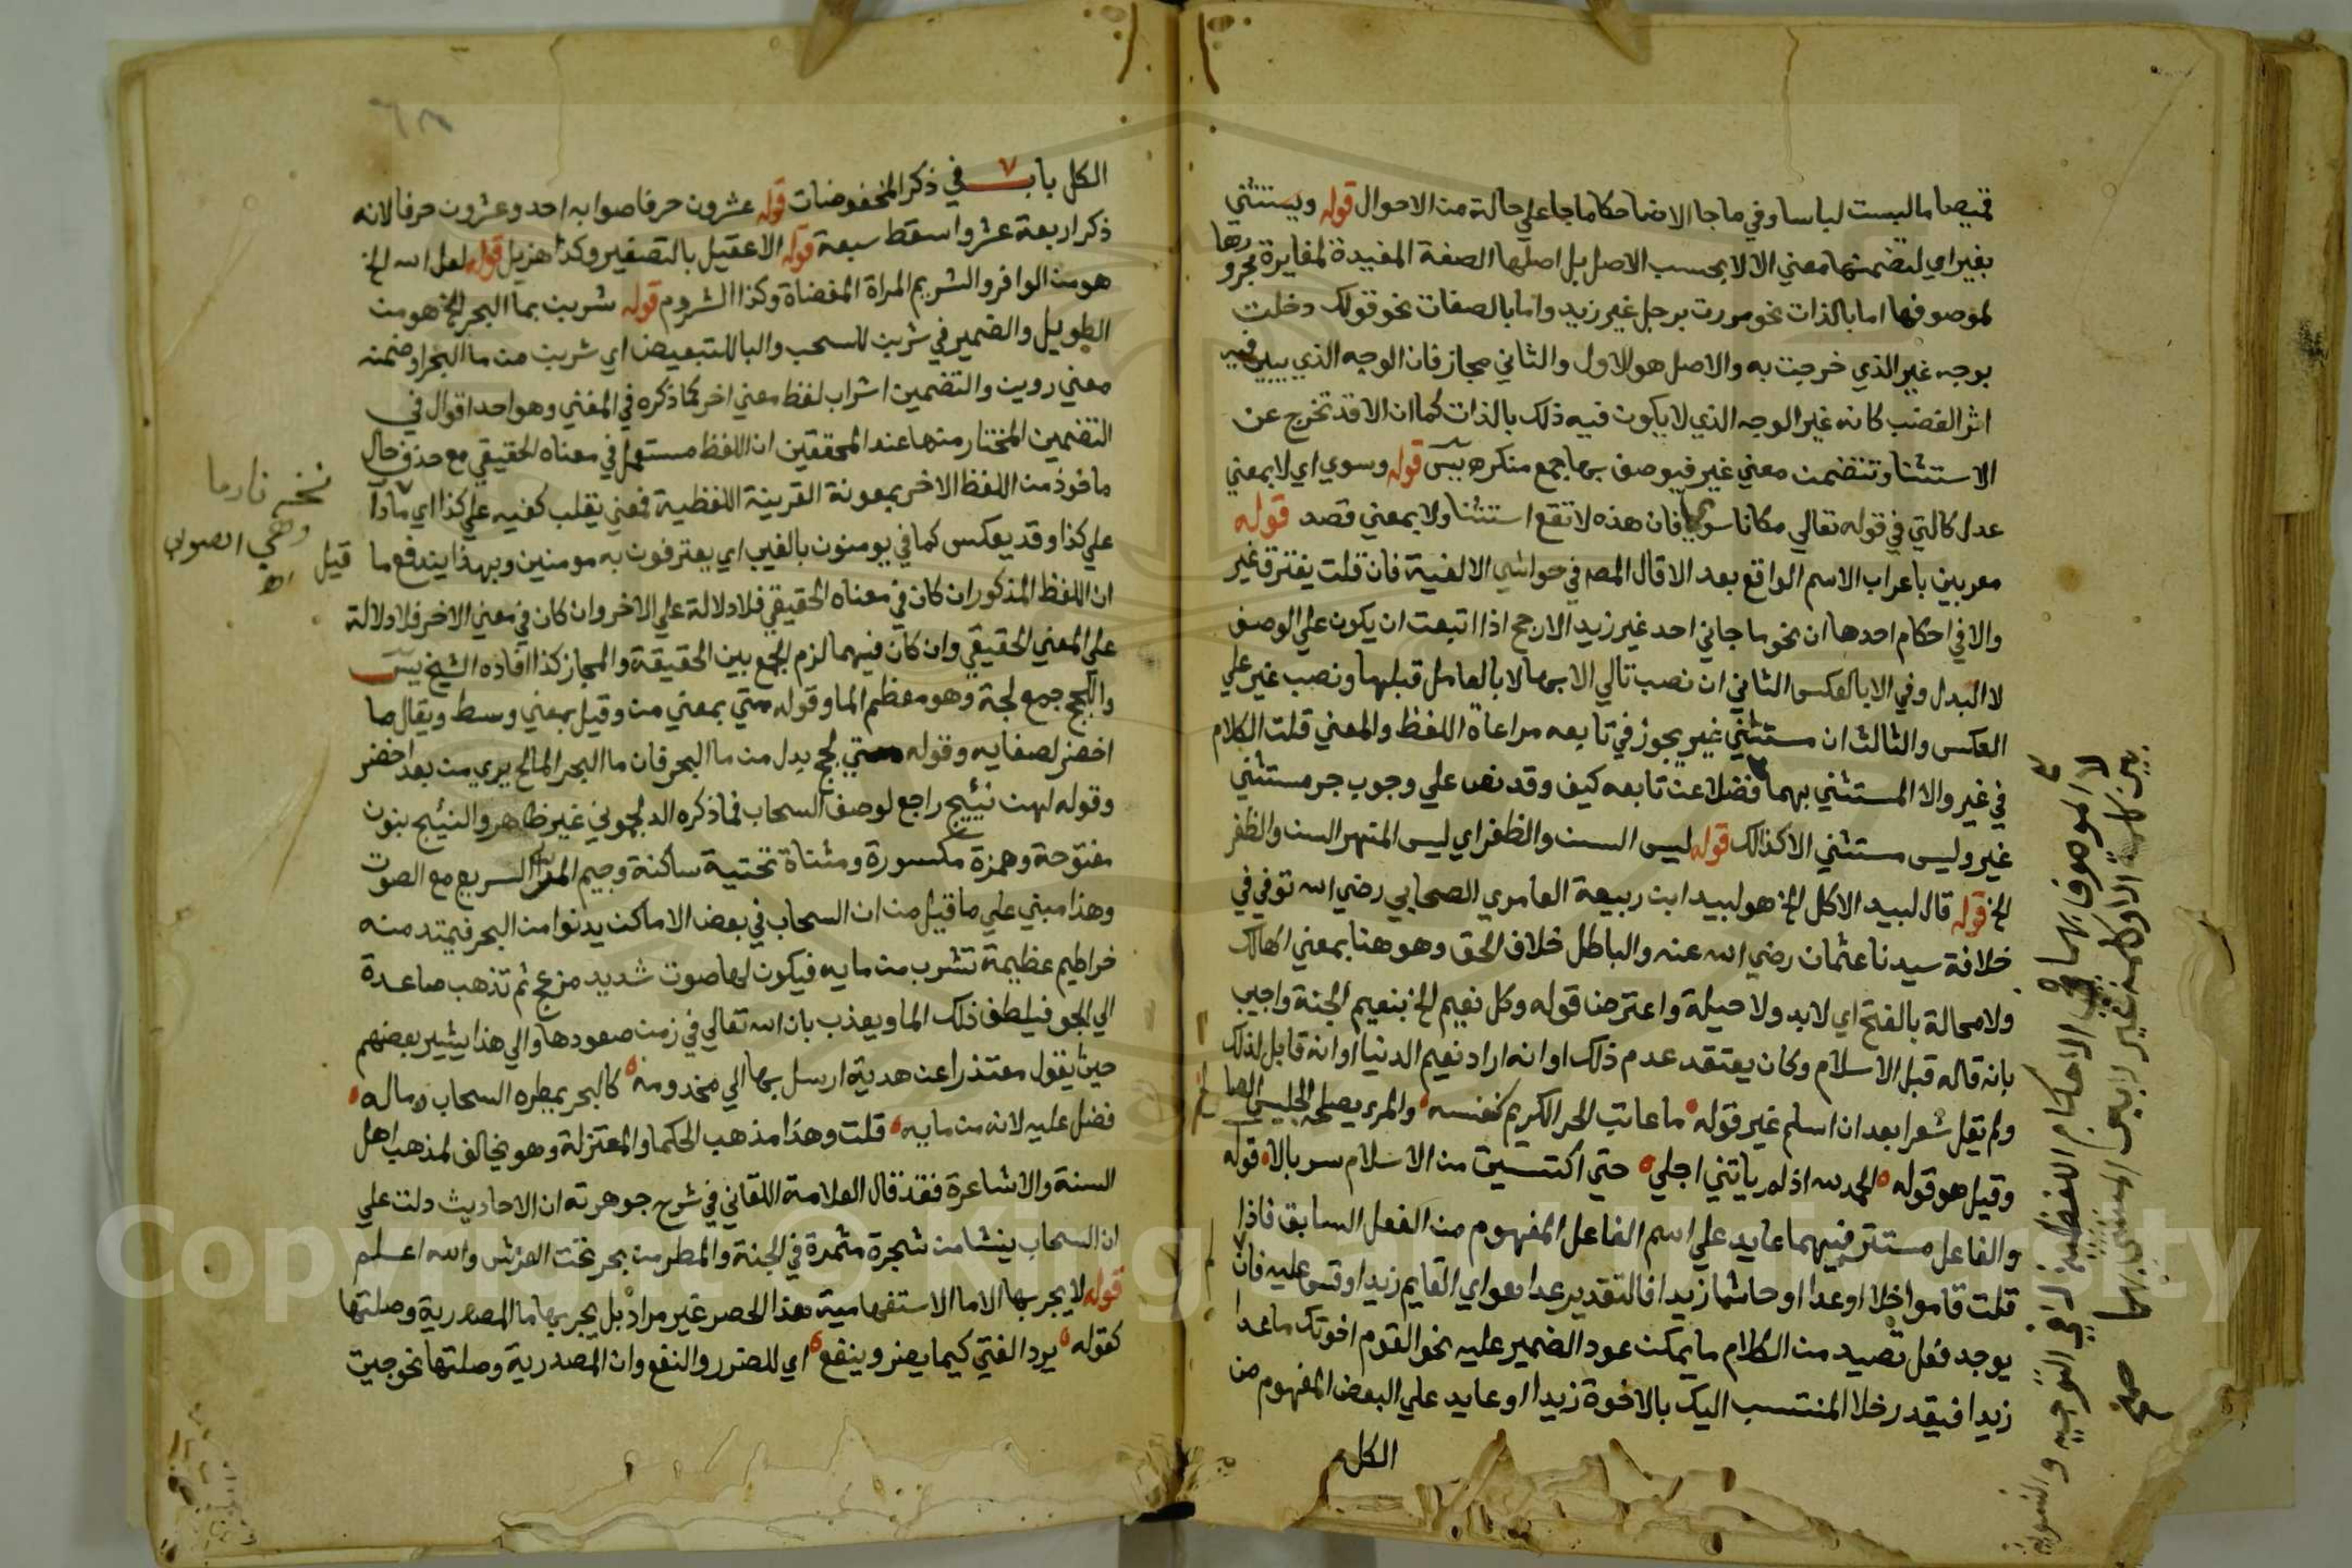 قميصا ما لبست لباسا وفي ما جا الا ضاحكا ما جا علي حالة من الاحوال قوله ويستثني
بغير اي لتضمنها معني الا لا بحسب الاصل بل اصلها الصفة المفيدة لمغايرة مجرورها
لموصوفها اما بالذات نحو مررت برجل غير زيد واما بالصفات نحو قولك دخلت
بوجه غير الذي خرجت به والاصل هو الاول والثاني مجاز فان الوجه الذي يبين فيه
اثر الغضب كانه غير الوجه الذي لا يكون فيه ذلك بالذات كما ان الا قد تخرج عن
الاستثنا وتتضمن معني غير فيوصف بها جمع منكر اه يس قوله وسوي اي لا بمعني
عدل كالتي في قوله تعالي مكانا سوي فان هذه لا تقع استثنا ولا بمعني قصد قوله
معربين باعراب الاسم الواقع بعد الا قال المص في حواشي الالفية فان قلت يفترق غير
والا في احكام احدها ان نحو ما جاني احد غير زيد الارجح اذا اتبعت ان يكون علي الوصف
لا البدل وفي الا بالعكس الثاني ان نصب تالي الا بها لا بالعامل قبلها ونصب غير علي
العكس والثالث ان مستثني غير يجوز في تابعه مراعاة اللفظ والمعني قلت الكلام
في غير والا المستثني بهما فضلا عن تابعه كيف وقد نص علي وجوب جر مستثني
غير وليس مستثني الا كذلك قوله ليس السن والظفر اي ليس المنهر السن والظفر
الخ قوله قال لبيد الا كل الخ هو لبيد ابن ربيعة العامري الصحابي رضي الله عنه توفي في
خلافة سيدنا عثمان رضي الله عنه والباطل خلاف الحق وهو هنا بمعني الهالك
ولا محالة بالفتح اي لا بد ولا حيلة واعترض قوله وكل نعيم الخ بنعيم الجنة واجيب
بانه قاله قبل الاسلام وكان يعتقد عدم ذلك او انه اراد نعيم الدنيا او انه قابل لذلك
ولم يقل شعرا بعد ان اسلم غير قوله ما عاتب الحر الكريم كنفسه والمرء يصلحه الجليس الصالح
وقيل هو قوله الحمد لله اذ لم ياتني اجلي حتي اكتسيت من الاسلام سربالا قوله
والفاعل مستتر فيهما عايد علي اسم الفاعل المفهوم من الفعل السابق فاذا
قلت قاموا خلا او عدا او حاشا زيدا فالتقدير عدا هو اي القايم زيدا وقس عليه فان لم
يوجد فعل تصيد من الكلام ما يمكن عود الضمير عليه نحو القوم اخوتك ما عدا
زيدا فيقدر خلا المنتسب اليك بالاخوة زيدا او عايد علي البعض المفهوم من
الكل
لا الموصوف بهما في الاحكام اللفظية لا في التوجيه والتسوية
بين كلمة الا وكلمة غير لا بين المستثني بهما صح
الكل باب في ذكر المخفوضات قوله عشرون حرفا صوابه احد وعشرون حرفا لانه
ذكر اربعة عشر واسقط سبعة قوله الاعقيل بالتصغير وكذا هزيل قوله لعل الله الخ
هو من الوافر والشريم المراة المفضاة وكذا الشروم قوله شربن بما البحر الخ هو من
الطويل والضمير في شربن للسحب والبا للتبعيض اي شربن من ما البحر او ضمنه
معني روين والتضمين اشراب لفظ معني اخر كما ذكره في المغني وهو احد اقوال في
التضمين المختار منها عند المحققين ان اللفظ مستعمل في معناه الحقيقي مع حذف حال
ماخوذ من اللفظ الاخر بمعونة القرينة اللفظية فمعني يقلب كفيه علي كذا اي نادما
علي كذا وقد يعكس كما في يومنون بالغيب اي يعترفون به مومنين وبهذا يندفع ما قيل
ان اللفظ المذكور ان كان في معناه الحقيقي فلا دلالة علي الاخر وان كان في معني الاخر فلا دلالة
علي المعني الحقيقي وان كان فيهما لزم الجمع بين الحقيقة والمجاز كذا افاده الشيخ يس
واللجج جمع لجة وهو معظم الما وقوله متي بمعني من وقيل بمعني وسط ويقال ما
اخضر لصفايه وقوله متي لجج بدل من ما البحر فان ما البحر المالح يري من بعد اخضر
وقوله لهن نئيج راجع لوصف السحاب فما ذكره الدلجموني غير ظاهر والنئيج بنون
مفتوحة وهمزة مكسورة ومثناة تحتية ساكنة وجيم المر السريع مع الصوت
وهذا مبني علي ما قيل من ان السحاب في بعض الاماكن يدنوا من البحر فيمتد منه
خراطيم عظيمة تشرب من مايه فيكون لها صوت شديد مزعج ثم تذهب صاعدة
الي الجو فيلطف ذلك الما ويعذب بان الله تعالي في زمن صعودها والي هذا يشير بعضهم
حيث يقول معتذرا عن هدية ارسل بها الي مخدومه كالبحر يمطره السحاب وما له
فضل عليه لانه من مايه قلت وهذا مذهب الحكما والمعتزلة وهو مخالف لمذهب اهل
السنة والاشاعرة فقد قال العلامة اللقاني في شرح جوهرته ان الاحاديث دلت علي
ان السحاب ينشا من شجرة مثمرة في الجنة والمطر من بحر تحت العرش والله اعلم
قوله لا يجر بها الا ما الاستفهامية هذا الحصر غير مراد بل يجر بها ما المصدرية وصلتها
كقوله يرد الفتي كيما يضر وينفع اي للضرر والنفع وان المصدرية وصلتها نحو جيت
نخه نادما
وهي الصواب
اه
Copyright © King Saud University